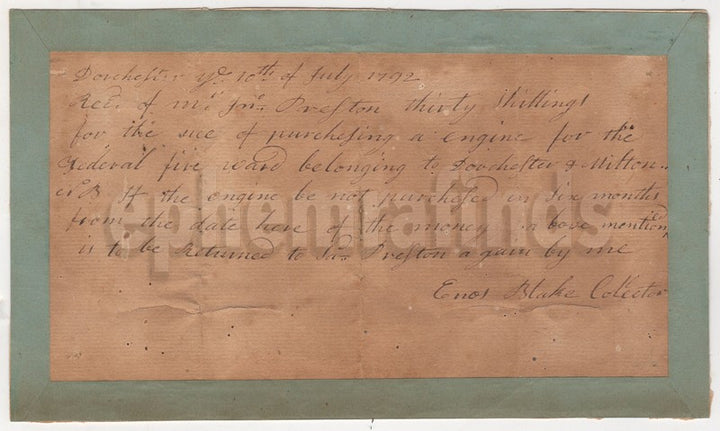 Dorchester ye 10th of July 1792
Recd. of Mr. Jno. Preston thirty Shillings
for the uce of purchesing a engine for the
Federal fire ward belonging to Dorchester & Milton
N B If the engine be not purchesed in six months
from the date here of the money a bove mentiond
is to be Returned to Preston a gain by me
Enos Blake Colector
ephemrafinds